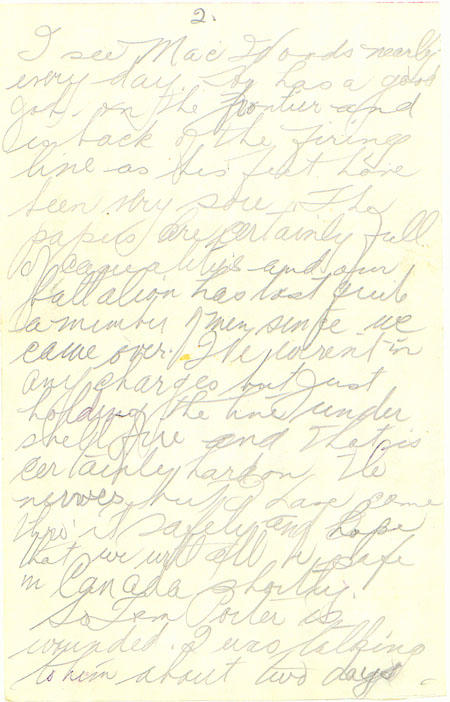 2.
I see Mac Woods nearly
every day. has a good
job, on the frontier and
is back of the firing
line as his feet have
been very sore. The
papers are certainly full
of casualties and our
battalion has lost quite
a number of men since we
came over. We werent in
any charges but just
holding the line under
shell fire and that is
certainly hard on the
nerves, but I have come
thro' it safely and hope
that we will all be safe
in Canada shortly.
So Tom Porter is
wounded. I was talking
to him about two days